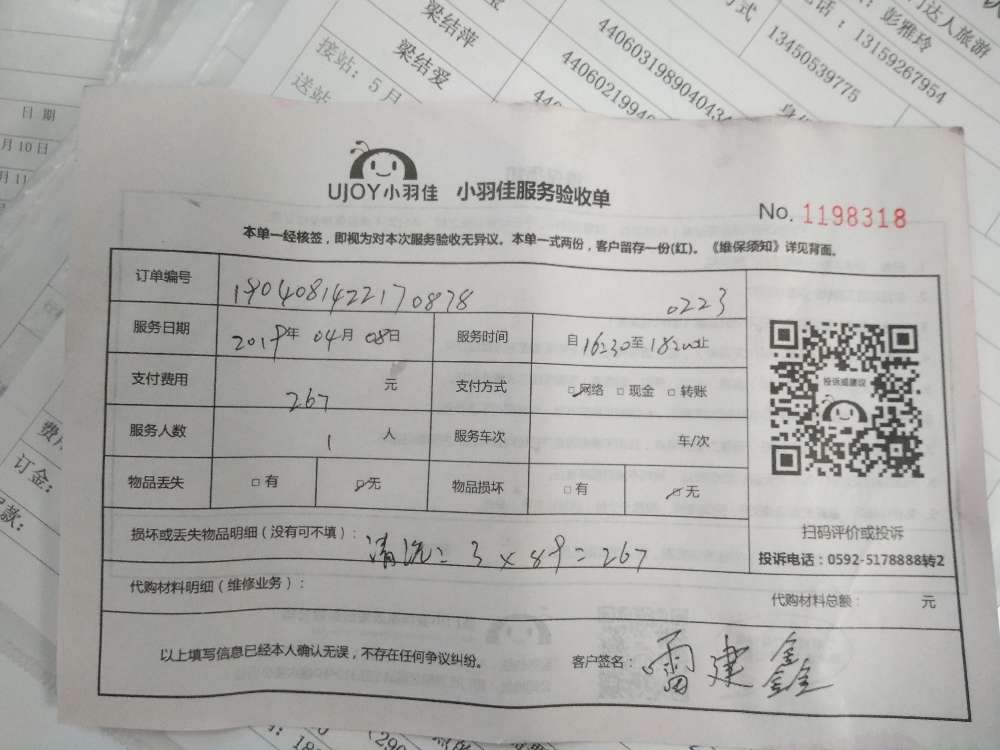 梁结萍
梁结爱
接站：5月
送站
4406031989040434
4406021994
13450539775
电话：13159267954
彭雅玲
门达人旅游
方式
日 期
月10日
月11
费用
订金：
UJOY小羽佳 小羽佳服务验收单
No. 1198318
本单一经核签，即视为对本次服务验收无异议。本单一式两份，客户留存一份(红)。《维保须知》详见背面。
订单编号 1904081422170878 0223
服务日期 2019年 04月 08日 服务时间 自16:30至18:20止
支付费用 267 元 支付方式 □网络 □现金 □转账
服务人数 1 人 服务车次 车/次
物品丢失 □有 □无 物品损坏 □有 □无
投诉或建议
扫码评价或投诉
投诉电话：0592-5178888转2
损坏或丢失物品明细（没有可不填）：清洗：3×89=267
代购材料明细（维修业务）：
代购材料总额： 元
以上填写信息已经本人确认无误，不存在任何争议纠纷。 客户签名：雷建鑫